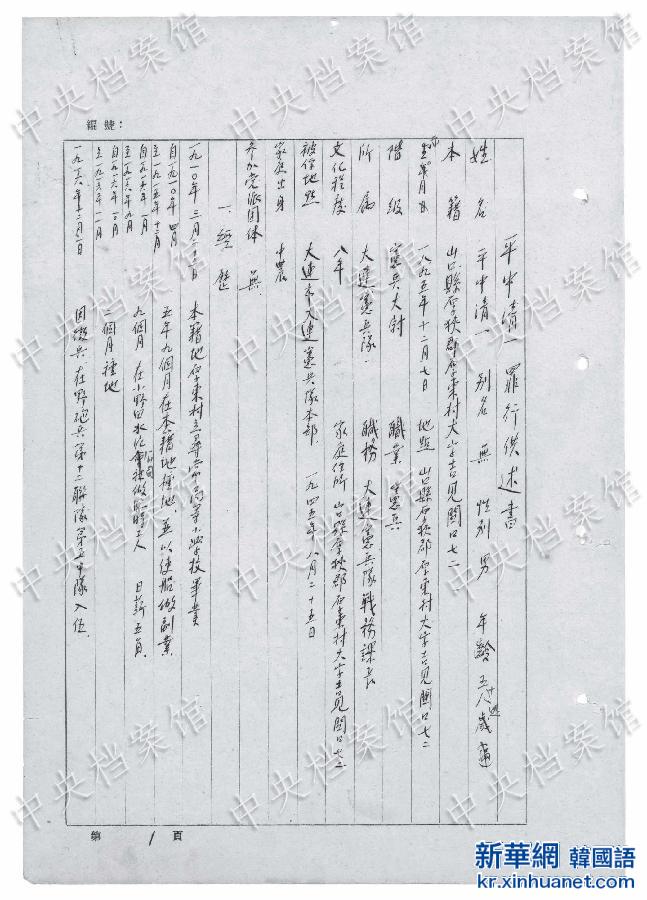 編號：
平中清一罪行供述書
姓名 平中清一 別名 無 性別 男 年齡 五十八歲 週
本籍 山口縣厚狹郡厚東村大字吉見関口七二
生年月日 一八九五年十二月七日 地點 山口縣厚狹郡厚東村大字吉見関口七二
階級 憲兵大尉 職業 憲兵
所屬 大連憲兵隊. 職務 大連憲兵隊戰務課長
文化程度 八年 家庭住所 山口縣厚狹郡厚東村大字吉見関口七二
被俘地點 大連市大連憲兵隊本部. 一九四五年八月二十五日
家庭出身 中農
參加党派团体 無
一. 經歷
一九一〇年三月二十日 本籍地厚東村立尋常高等小學校畢業
自一九一〇年四月
至一九一五年十二月 五年九個月在本籍地種地, 並以使船做副業
自一九一六年一月
至一九一六年九月 九個月 在小野田 做 工人 日薪五角
自一九一六年十月
至一九一六年十一月 二個月種地
一九一六年十二月一日 因徵兵在野砲兵第十二聯隊第五中隊入伍.
第 1 頁
中央档案馆
新華網 韓國語
kr.xinhuanet.com